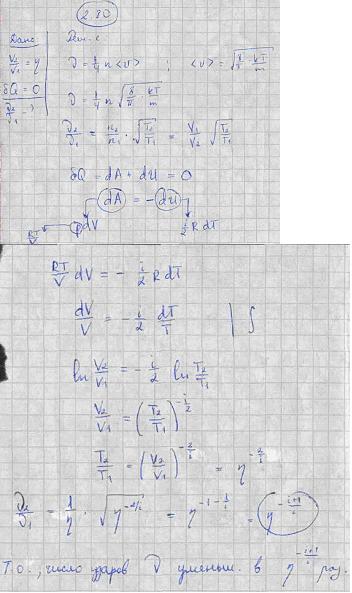 2.80
Дано:
V₂/V₁ = η
δQ = 0
ν₂/ν₁ - ?
ν = 1/4 n <v> ; <v> = √(8/π · kT/m)
ν = 1/4 n √(8/π · kT/m)
ν₂/ν₁ = n₂/n₁ · √(T₂/T₁) = V₁/V₂ √(T₂/T₁)
δQ = dA + dU = 0
dA = - dU
RT/V ← p dV i/2 R dT
RT/V dV = - i/2 R dT
dV/V = - i/2 dT/T | ∫
ln V₂/V₁ = - i/2 ln T₂/T₁
V₂/V₁ = (T₂/T₁)^(-i/2)
T₂/T₁ = (V₂/V₁)^(-2/i) = η^(-2/i)
ν₂/ν₁ = 1/η · √(η^(-2/i)) = η^(-1-1/i) = η^(-(i+1)/i)
Т.о., число ударов ν уменьш. в η^(-(i+1)/i) раз.